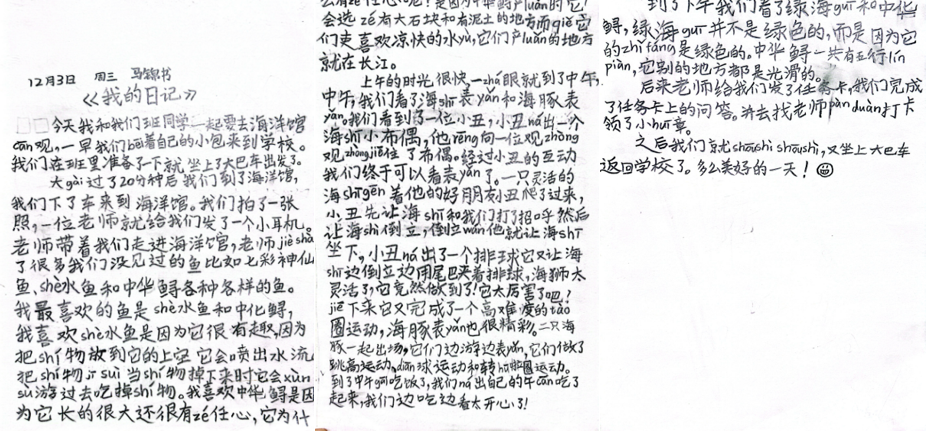 12月3日 周三 马锦书
《我的日记》
今天我和我们班同学一起要去海洋馆
cān观,一早我们bēi着自己的小包来到学校。
我们在班里准备了一下就坐上了大巴车出发了。
大gài过了20分钟后我们到了海洋馆,
我们下了车来到海洋馆。我们拍了一张
照,一位老师就给我们发了一个小耳机。
老师带着我们走进海洋馆,老师jiè shào
了很多我们没见过的鱼比如七彩神仙
鱼、shè水鱼和中华鲟各种各样的鱼。
我最喜欢的鱼是shè水鱼和中化鲟,
我喜欢shè水鱼是因为它很有趣,因为
把shí物放到它的上空它会喷出水流
把shí物jī suì当shí物掉下来时它会xùn
sù游过去吃掉shí物。我喜欢中华鲟是因
为它长的很大还很有zé任心,它为什
么有zé任心呢?是因为中华鲟产luǎn时它
会选zé有大石块和有泥土的地方而qiě它
们更喜欢凉快的水yù,它们产luǎn的地方
就在长江。
上午的时光很快一zhǎ眼就到了中午,
中午,我们看了海shī表yǎn和海豚表
yǎn。我们看到了一位小丑,小丑ná出一个
海shī小布偶,他rēng向一位观zhòng
观zhòng jiē住了布偶。经过小丑的互动
我们终于可以看表yǎn了。一只灵活的
海shī gēn着他的好朋友小丑爬了过来,
小丑先让海shī和我们打了招呼然后
让海shī倒立,倒立wán他就让海shī
坐下,小丑ná出了一个排球它又让海
shī边倒立边用尾巴夹着排球,海狮太
灵活了,它竟然做到了!它太厉害了吧!
jiē下来它又完成了一个高难度的tào
圈运动,海豚表yǎn也很精彩。二只海
豚一起出场,它们边游边表yǎn,它们做了
跳高运动、dǐng球运动和转hū啦圈运动。
到了中午gāi吃饭了,我们ná出自己的午cān吃了
起来,我们边吃边看太开心了!
到了下午我们看了绿海guī和中华
鲟,绿海guī并不是绿色的,而是因为它
的zhī fáng是绿色的。中华鲟一共有五行lín
piàn,它别的地方都是光滑的。
后来老师给我们发了任务卡,我们完成
了任务卡上的问答。并去找老师pàn duàn打卡
领了小huī章。
之后我们就shōu shi shōu shi,又坐上大巴车
返回学校了。多么美好的一天!